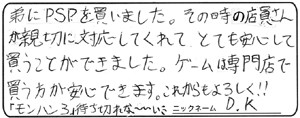 弟にPSPを買いました。その時の店員さん
が親切に対応してくれて、とても安心して
買うことができました。ゲームは専門店で
買う方が安心できます。これからもよろしく!!
「モンハン3」待ち切れな〜い:: ニックネーム D.K